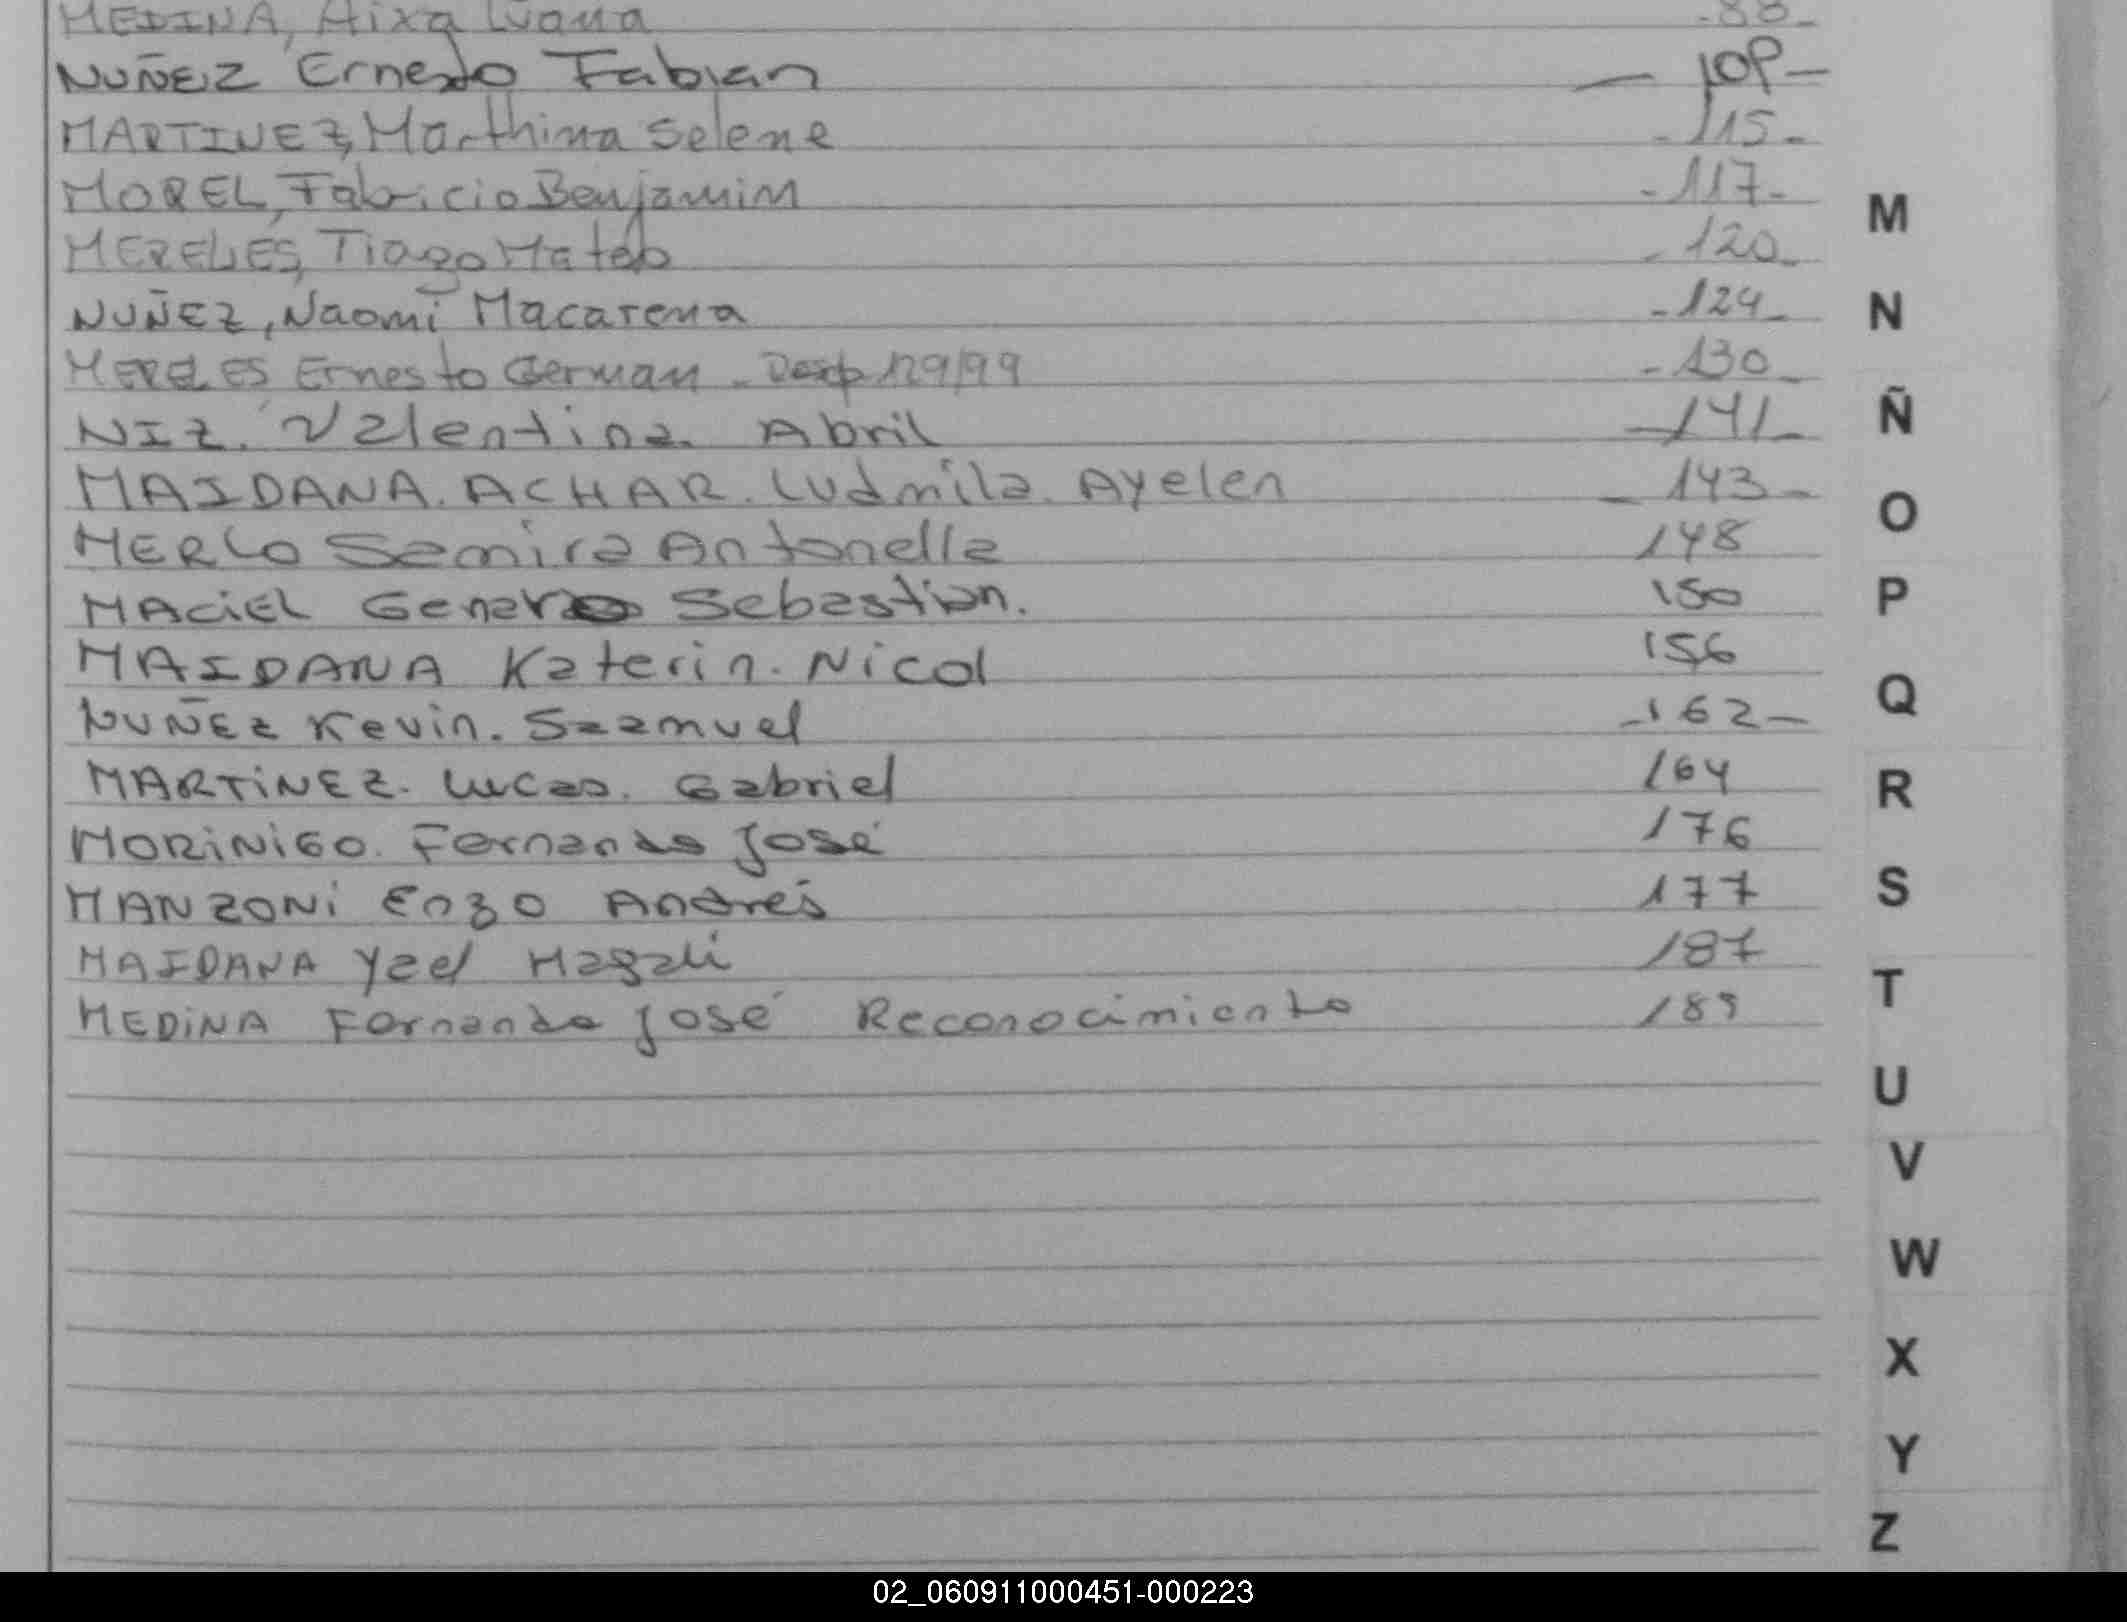 MEDINA, Aixa Luana -88-
NUÑEZ Ernesto Fabian — 109—
MARTINEZ, Marthina Selene - 115-
MOREL, Fabricio Benjamim - 117-
MERELES, Tiago Mateo - 120-
NUÑEZ, Naomi Macarena - 124-
MERELES Ernesto German - 129/99 - 130-
NIZ. Valentina Abril —141-
MAIDANA. ACHAR. Ludmila Ayelen - 143-
MERLO Samira Antonella 148
MACIEL Genaro Sebastian. 150
MAIDANA Katerin. Nicol 156
NUÑEZ Kevin. Saamuel -162-
MARTiNEZ. Lucas. Gabriel 164
MORiNiGO. Fernando José 176
MANZONi Enzo Andrés 177
MAIDANA Yael Magali 187
MEDiNA Fernando José Reconocimiento 189
M
N
Ñ
O
P
Q
R
S
T
U
V
W
X
Y
Z
02_060911000451-000223